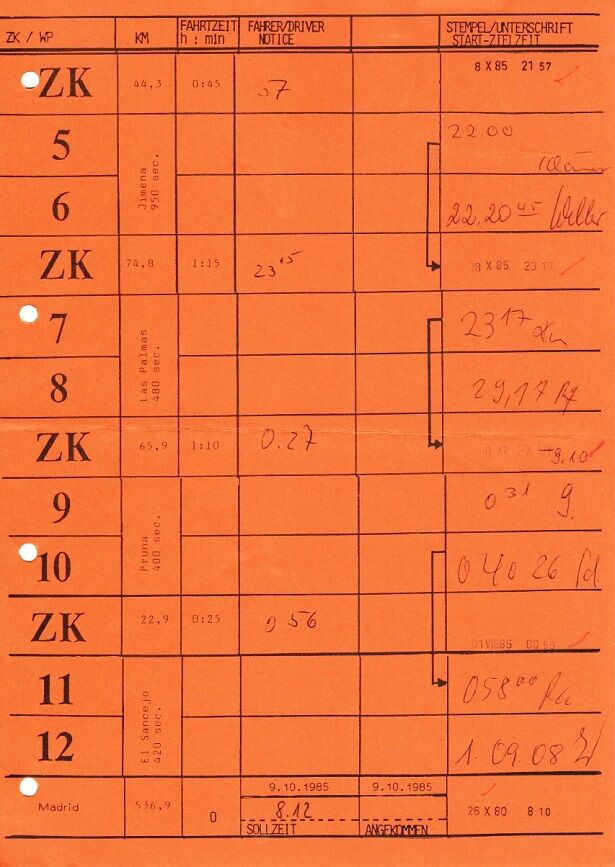 ZK / WP KM FAHRTZEIT h : min FAHRER/DRIVER NOTICE STEMPEL/UNTERSCHRIFT START-ZIELZEIT
ZK 44,3 0:45 57 8 X 85 21 57
5 22.00
Jimena 950 sec.
6 22.20 45
ZK 74,8 1:15 23 15 08 X 85 23 15
7 23 17
Las Palmas 480 sec.
8 29,17
ZK 65,9 1:10 0.27 9.10
9 0 31 9.
Pruna 400 sec.
10 0 40 26
ZK 22,9 0:25 0 56
11 058 00
El Sancejo 420 sec.
12 1.09.08
9.10.1985 9.10.1985
Madrid 536,9 0 8.12 26 X 80 8 10
SOLLZEIT ANGEKOMMEN